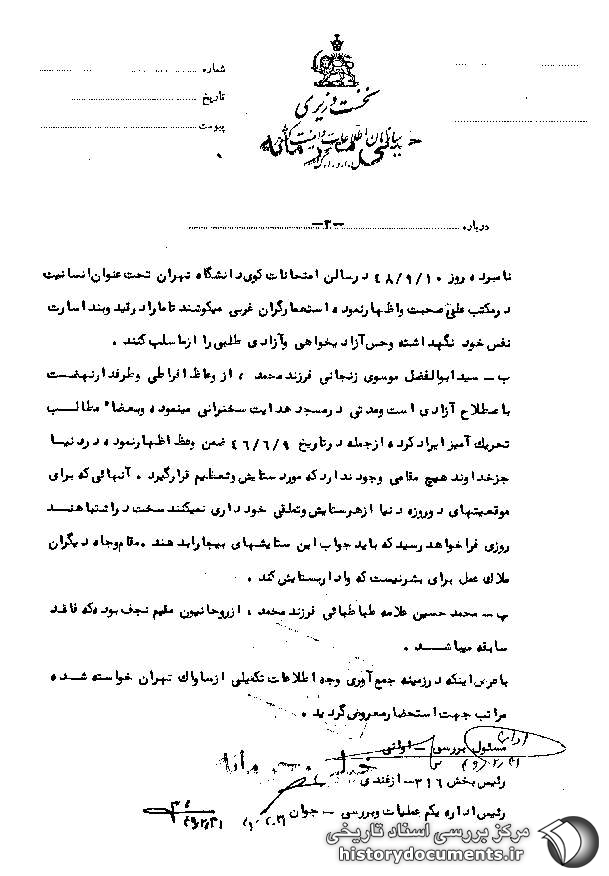 شماره
تاریخ
پیوست
نخست وزیری
سازمان اطلاعات و امنیت کشور
خیلی محرمانه
درباره
-۳-
نامبرده روز ۴۸/۹/۱۰ درسالن امتحانات کوی دانشگاه تهران تحت عنوان انسانیت
درمکتب علی صحبت واظهارنموده استعمارگران غربی میکوشند تا مارا درقید وبند اسارت
نفس خود نگهداشته وحس آزادیخواهی وآزادی طلبی را ازما سلب کنند .
ب – سید ابوالفضل موسوی زنجانی فرزند محمد ، از وعاظ افراطی وطرفدارنهضت
باصطلاح آزادی است ومدتی درمسجد هدایت سخنرانی مینموده وبعضاً مطالب
تحریک آمیز ایراد کرده ازجمله درتاریخ ۴۶/۶/۹ ضمن وعظ اظهارنموده در دنیا
جزخداوند هیچ مقامی وجود ندارد که مورد ستایش وتعظیم قرارگیرد . آنهائی که برای
موقعیتهای دوروزه دنیا ازهرستایش وتملقی خودداری نمیکنند سخت دراشتباهند
روزی فراخواهد رسید که باید جواب این ستایشهای بیجا رابدهند .مقام وجاه دیگران
ملاک عمل برای بشرنیست که وادار بستایش کند .
پ – محمد حسین علامه طباطبائی فرزند محمد ، ازروحانیون مقیم نجف بوده که فاقد
سابقه میباشد .
باعرض اینکه درزمینه جمع آوری وجه اطلاعات تکمیلی ازساواک تهران خواسته شده
مراتب جهت استحضارمعروض گردید .
مسئول بررسی –
خیلی محرمانه
رئیس بخش ۳۱۶ – ازغندی
رئیس اداره یکم عملیات وبررسی – جوان
مرکز بررسی اسناد تاریخی
historydocuments.ir